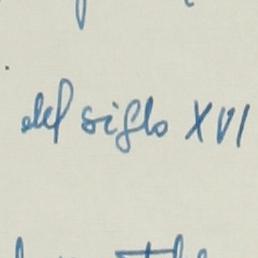 del siglo XVI